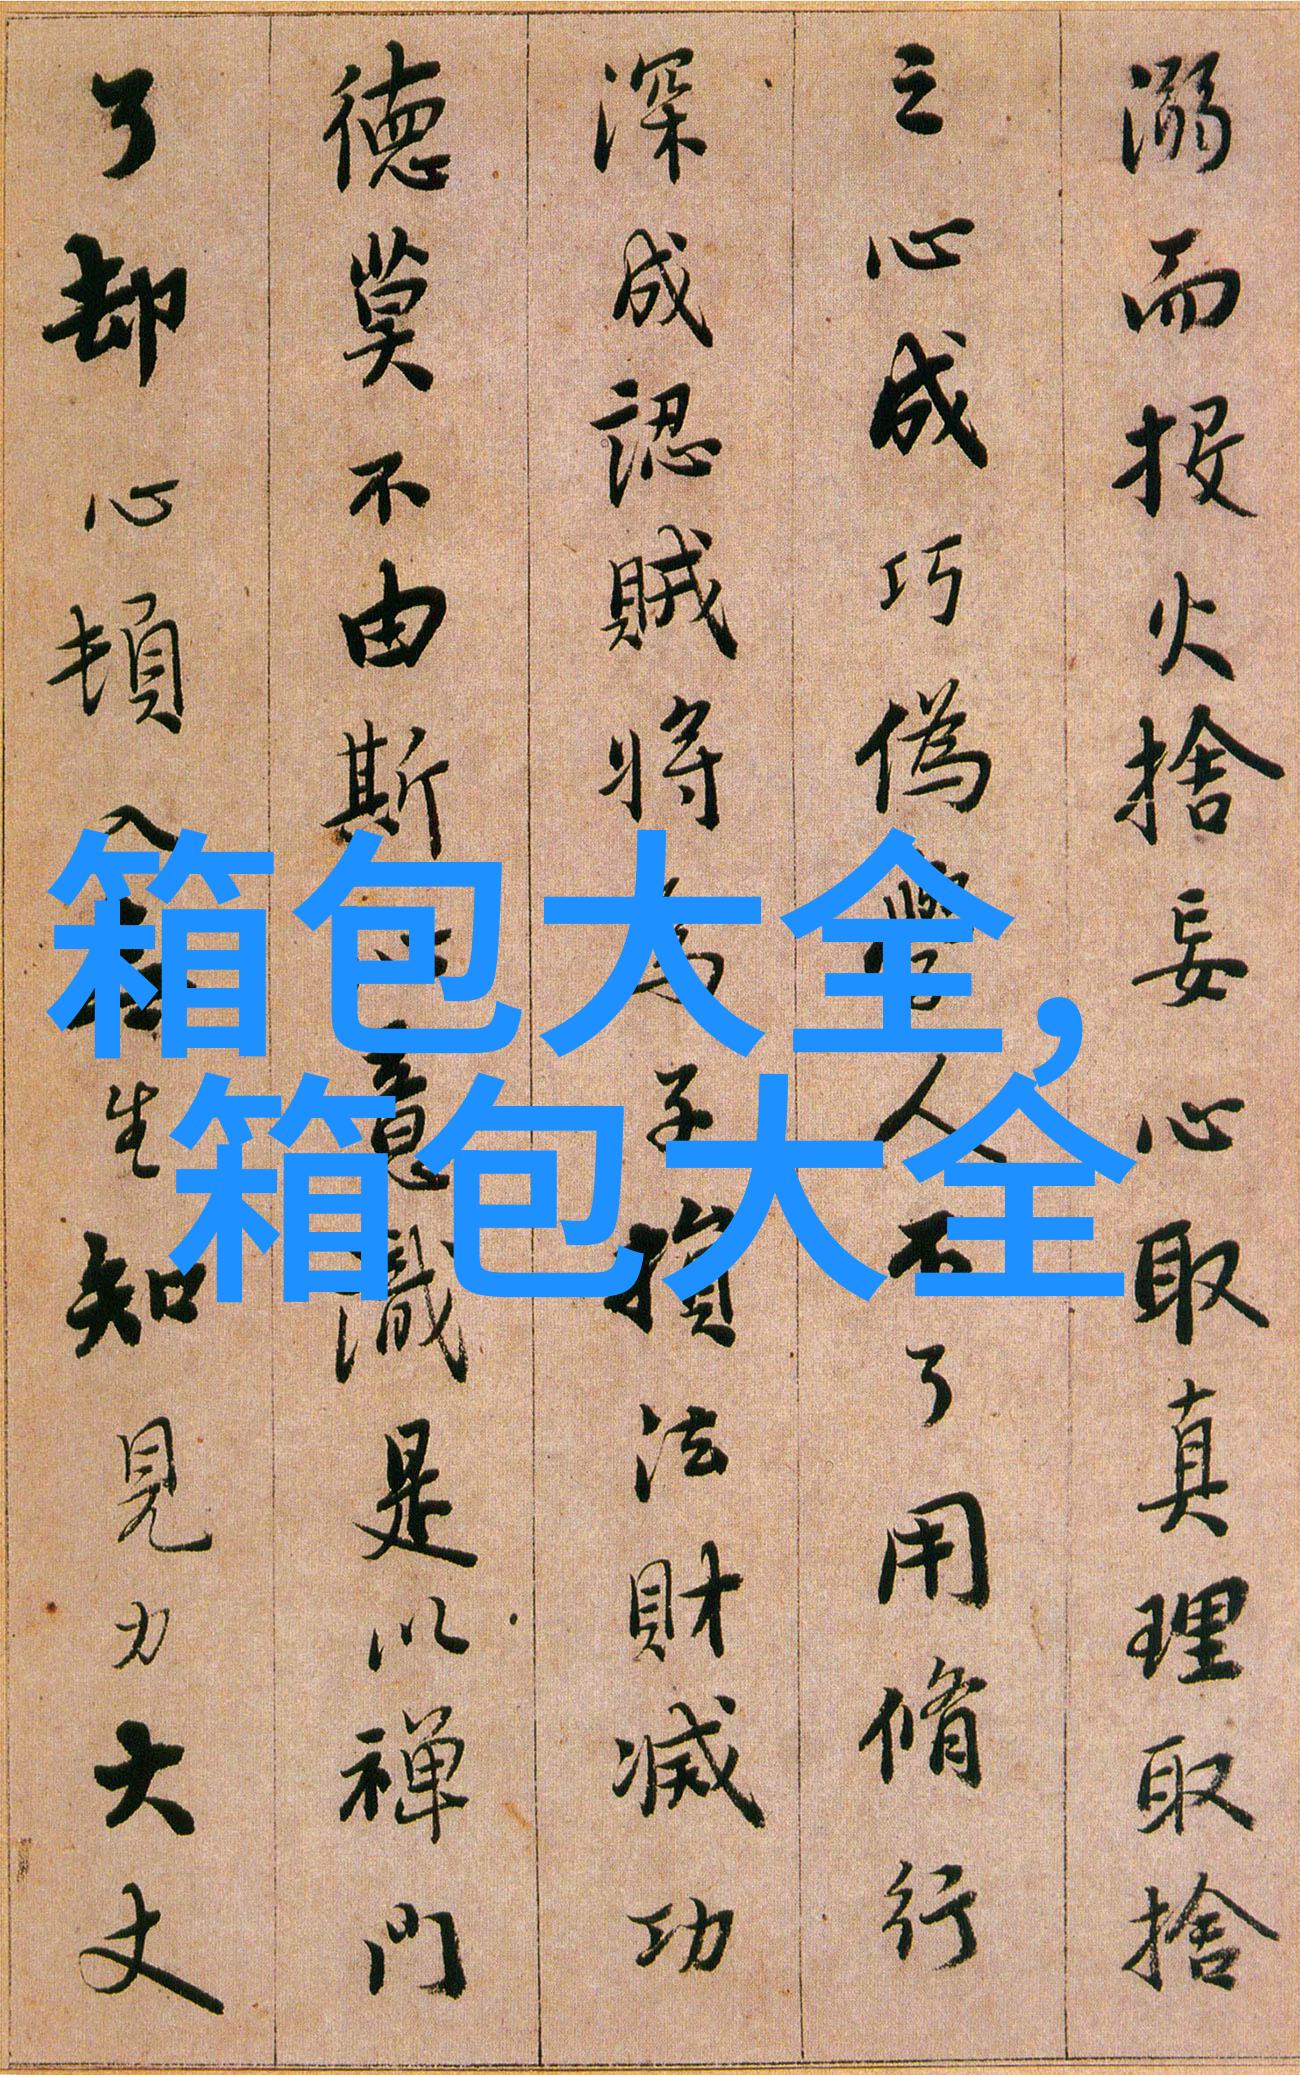 溺而投火捨妄心取真理取捨
之心成巧偽學人不了用脩行
深成認賊將為子損法財滅功
德莫不由斯心意識是以禪門
了却心頓入無生知見力大丈
箱包大全,
箱包大全